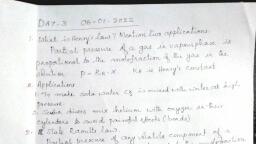 DAY-3 06-01-2022
1. What is Henry's law? Mention two applications.
Partial pressure of a gas in vapour phase is
proportional to the mole fraction of the gas in the
solution. P = KH·X KH is Henry's constant
Applications
1. To make soda water CO2 is mixed with water at high
pressure.
2. Scuba divers mix helium with oxygen in their
cylinders to avoid painful effects (bends)
2. State Raoult's law.
Partial pressure of any volatile component of a